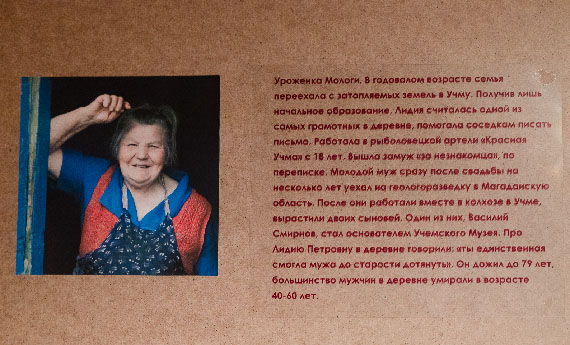 Уроженка Мологи. В годовалом возрасте семья
переехала с затопляемых земель в Учму. Получив лишь
начальное образование, Лидия считалась одной из
самых грамотных в деревне, помогала соседкам писать
письма. Работала в рыболовецкой артели «Красная
Учма» с 16 лет. Вышла замуж «за незнакомца», по
переписке. Молодой муж сразу после свадьбы на
несколько лет уехал на геологоразведку в Магаданскую
область. После они работали вместе в колхозе в Учме,
вырастили двоих сыновей. Один из них, Василий
Смирнов, стал основателем Учемского Музея. Про
Лидию Петровну в деревне говорили: «ты единственная
смогла мужа до старости дотянуть». Он дожил до 79 лет,
большинство мужчин в деревне умирали в возрасте
40-60 лет.